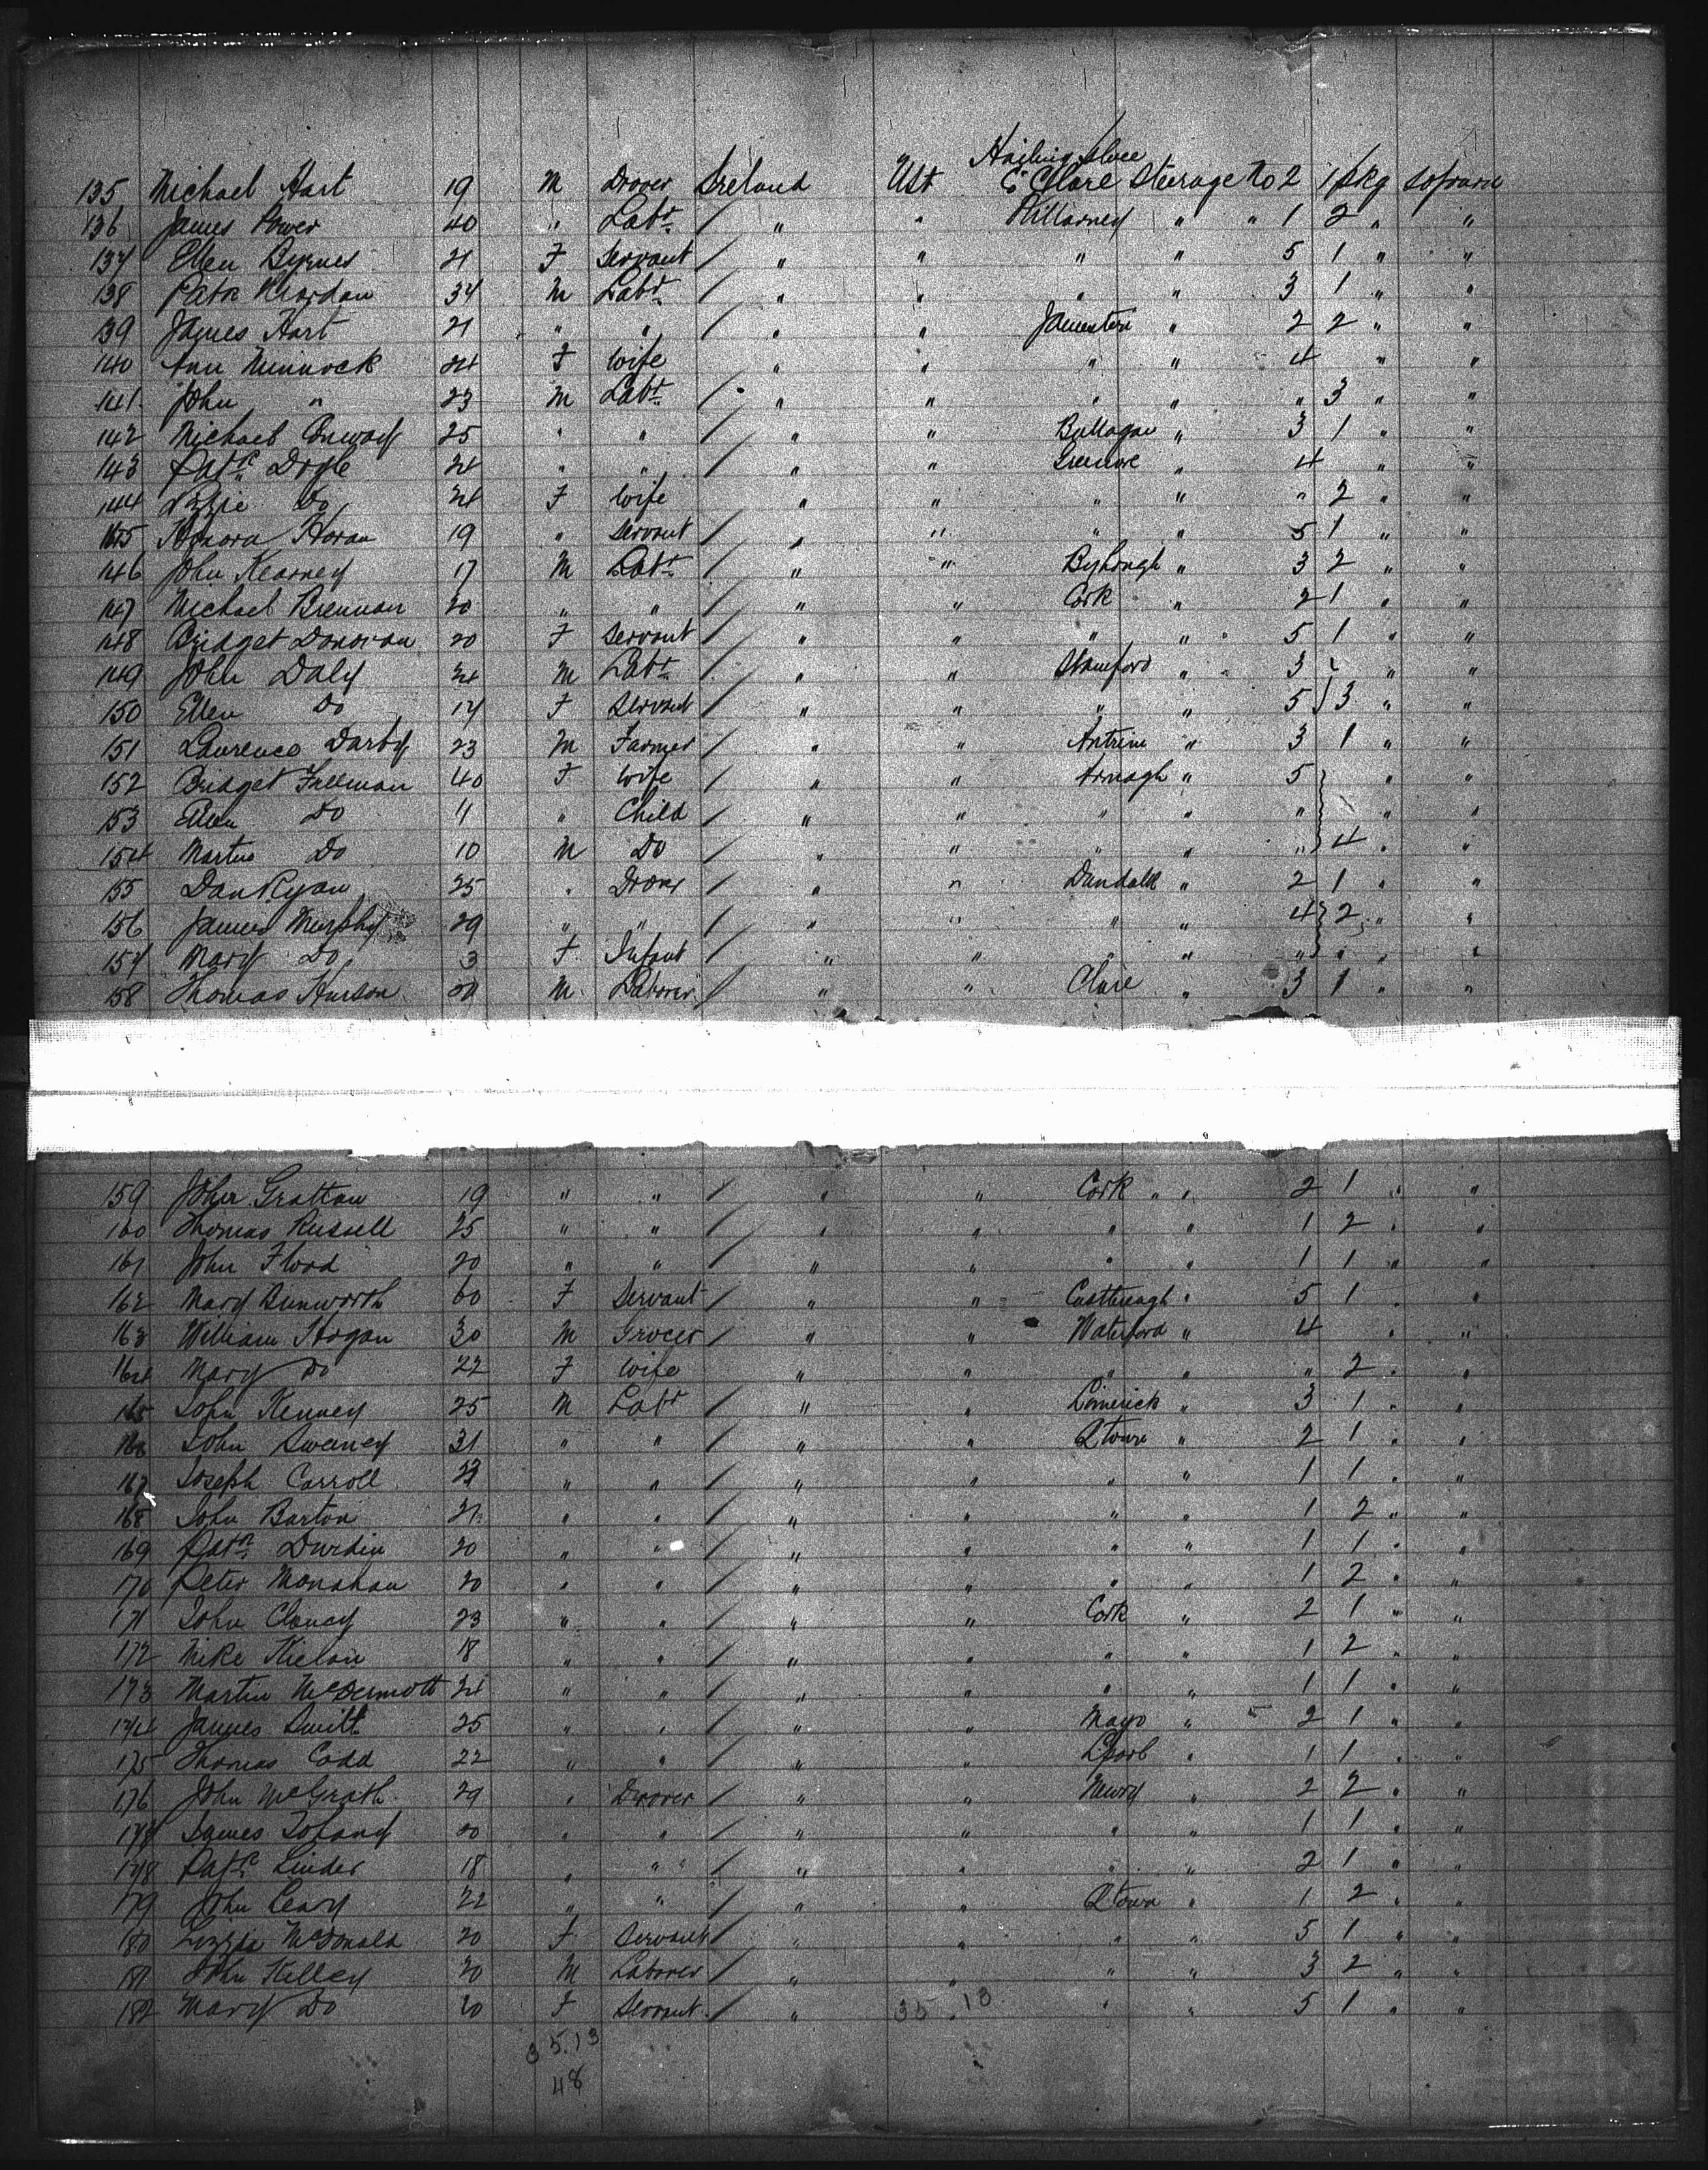 Hailing place
135 Michael Hart 19 M Drover Ireland USt Co Clare Steerage No 2 1 pkg Sojourn
136 James Power 40 " Labr / " " Killarney " " 1 2 " "
137 Ellen Byrnes 21 F Servant / " " " " 5 1 " "
138 Patk Riordan 34 M Labr / " " " " 3 1 " "
139 James Hart 21 " " / " " Jamestown " 2 2 " "
140 Ann Minnock 24 F Wife " " " " 4 " "
141 John " 23 M Labr / " " " " " 3 " "
142 Michael Conway 25 " " / " " " 3 1 " "
143 Patk Doyle 24 " " / " " Greenore " 4 " "
144 Lizzie Do 24 F Wife " " " " " 2 " "
145 Honora Horan 19 " Servant / " " " " 5 1 " "
146 John Kearney 17 M Labr / " " " 3 2 " "
147 Michael Brennan 20 " " / " " Cork " 2 1 " "
148 Bridget Donovan 20 F Servant / " " " " 5 1 " "
149 John Daly 24 M Labr / " " Stamford " 3 " "
150 Ellen Do 17 F Servant / " " " " 5 3 " "
151 Laurence Darby 23 M Farmer / " " Antrim " 3 1 " "
152 Bridget Freeman 40 F Wife / " " Armagh " 5 " "
153 Ellen Do 11 " Child / " " " " " " "
154 Martin Do 10 M Do / " " " " " 4 " "
155 Dan Ryan 25 " Drover / " " Dundalk " 2 1 " "
156 James Murphy 29 " " / " " " " 4 2 " "
157 Mary Do 3 F Infant / " " " " " " " "
158 Thomas Hurson 20 M Laborer / " " Clare " 3 1 " "
159 John Grattan 19 " " / " " Cork " " 2 1 " "
160 Thomas Russell 25 " " / " " " " 1 2 " "
161 John Flood 20 " " / " " " " 1 1 " "
162 Mary Bunworth 60 F Servant / " " " 5 1 " "
163 William Hogan 30 M Grocer / " " Waterford " 4 " "
164 Mary Do 22 F Wife " " " " " 2 " "
165 John Kenney 25 M Labr / " " Limerick " 3 1 " "
166 John Sweeney 31 " " / " " Qtown " 2 1 " "
167 Joseph Carroll " " / " " " " 1 1 " "
168 John Barton 21 " " / " " " " 1 2 " "
169 Patk Durkin 20 " " / " " " " 1 1 " "
170 Peter Monahan 20 " " / " " " " 1 2 " "
171 John Clancy 23 " " / " " Cork " 2 1 " "
172 Mike Kielan 18 " " / " " " " 1 2 " "
173 Martin McDermott 24 " " / " " " " 1 1 " "
174 James Smith 25 " " / " " Mayo " 2 1 " "
175 Thomas Codd 22 " " / " " " 1 1 " "
176 John McGrath 29 " Drover / " " Newry " 2 2 " "
177 James Toland 20 " " / " " " " 1 1 " "
178 Patk Linder 18 " " " / " " " " 2 1 " "
179 John Leary 22 " " / " " Qtown " 1 2 " "
180 Lizzie McDonald 20 F Servant / " " " " 5 1 " "
181 John Kelley 20 M Laborer / " " " " 3 2 " "
182 Mary Do 20 F Servant / " 35.13 " " 5 1 " "
35.13
48